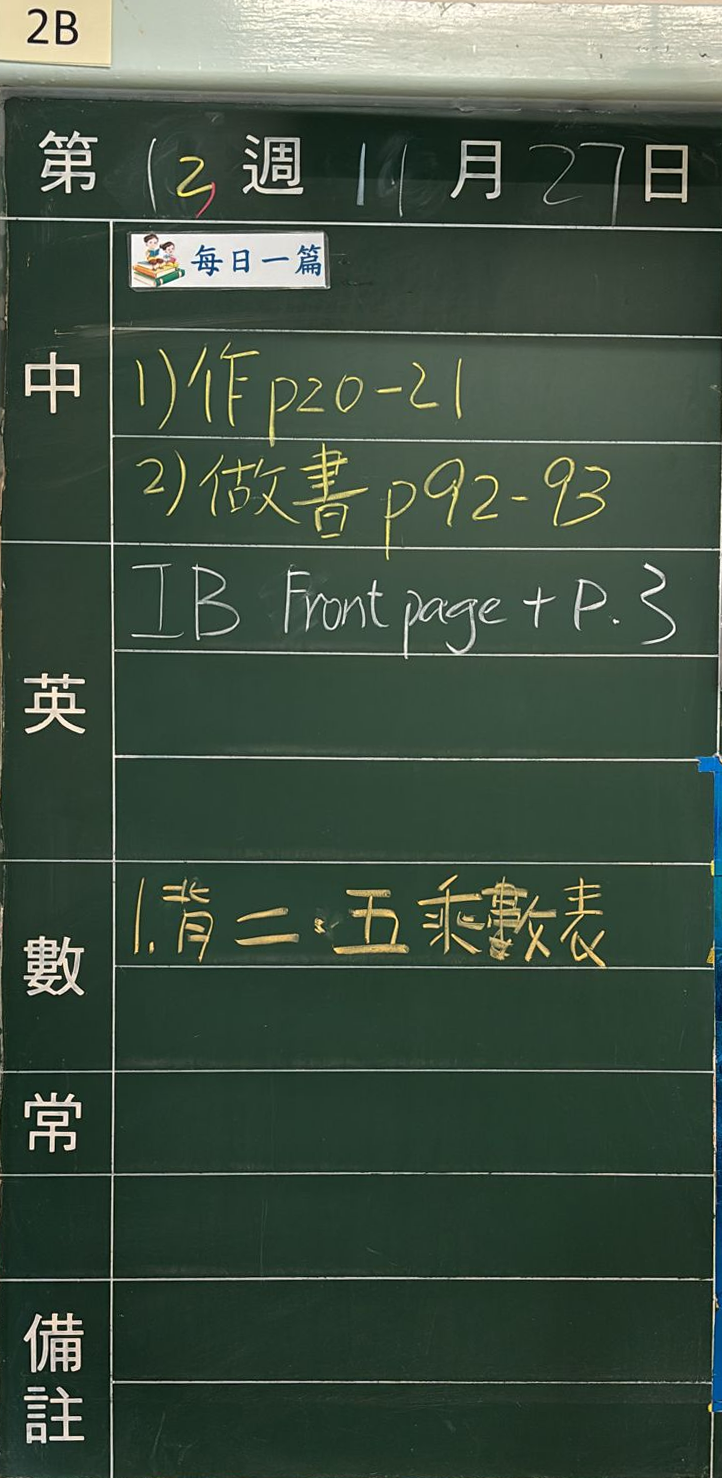 2B
第 12 週 11 月 27 日
每日一篇
中
1) 作 p20-21
2) 做書 p92-93
英
IB Front page + P. 3
數
1. 背二、五乘數表
常
備註